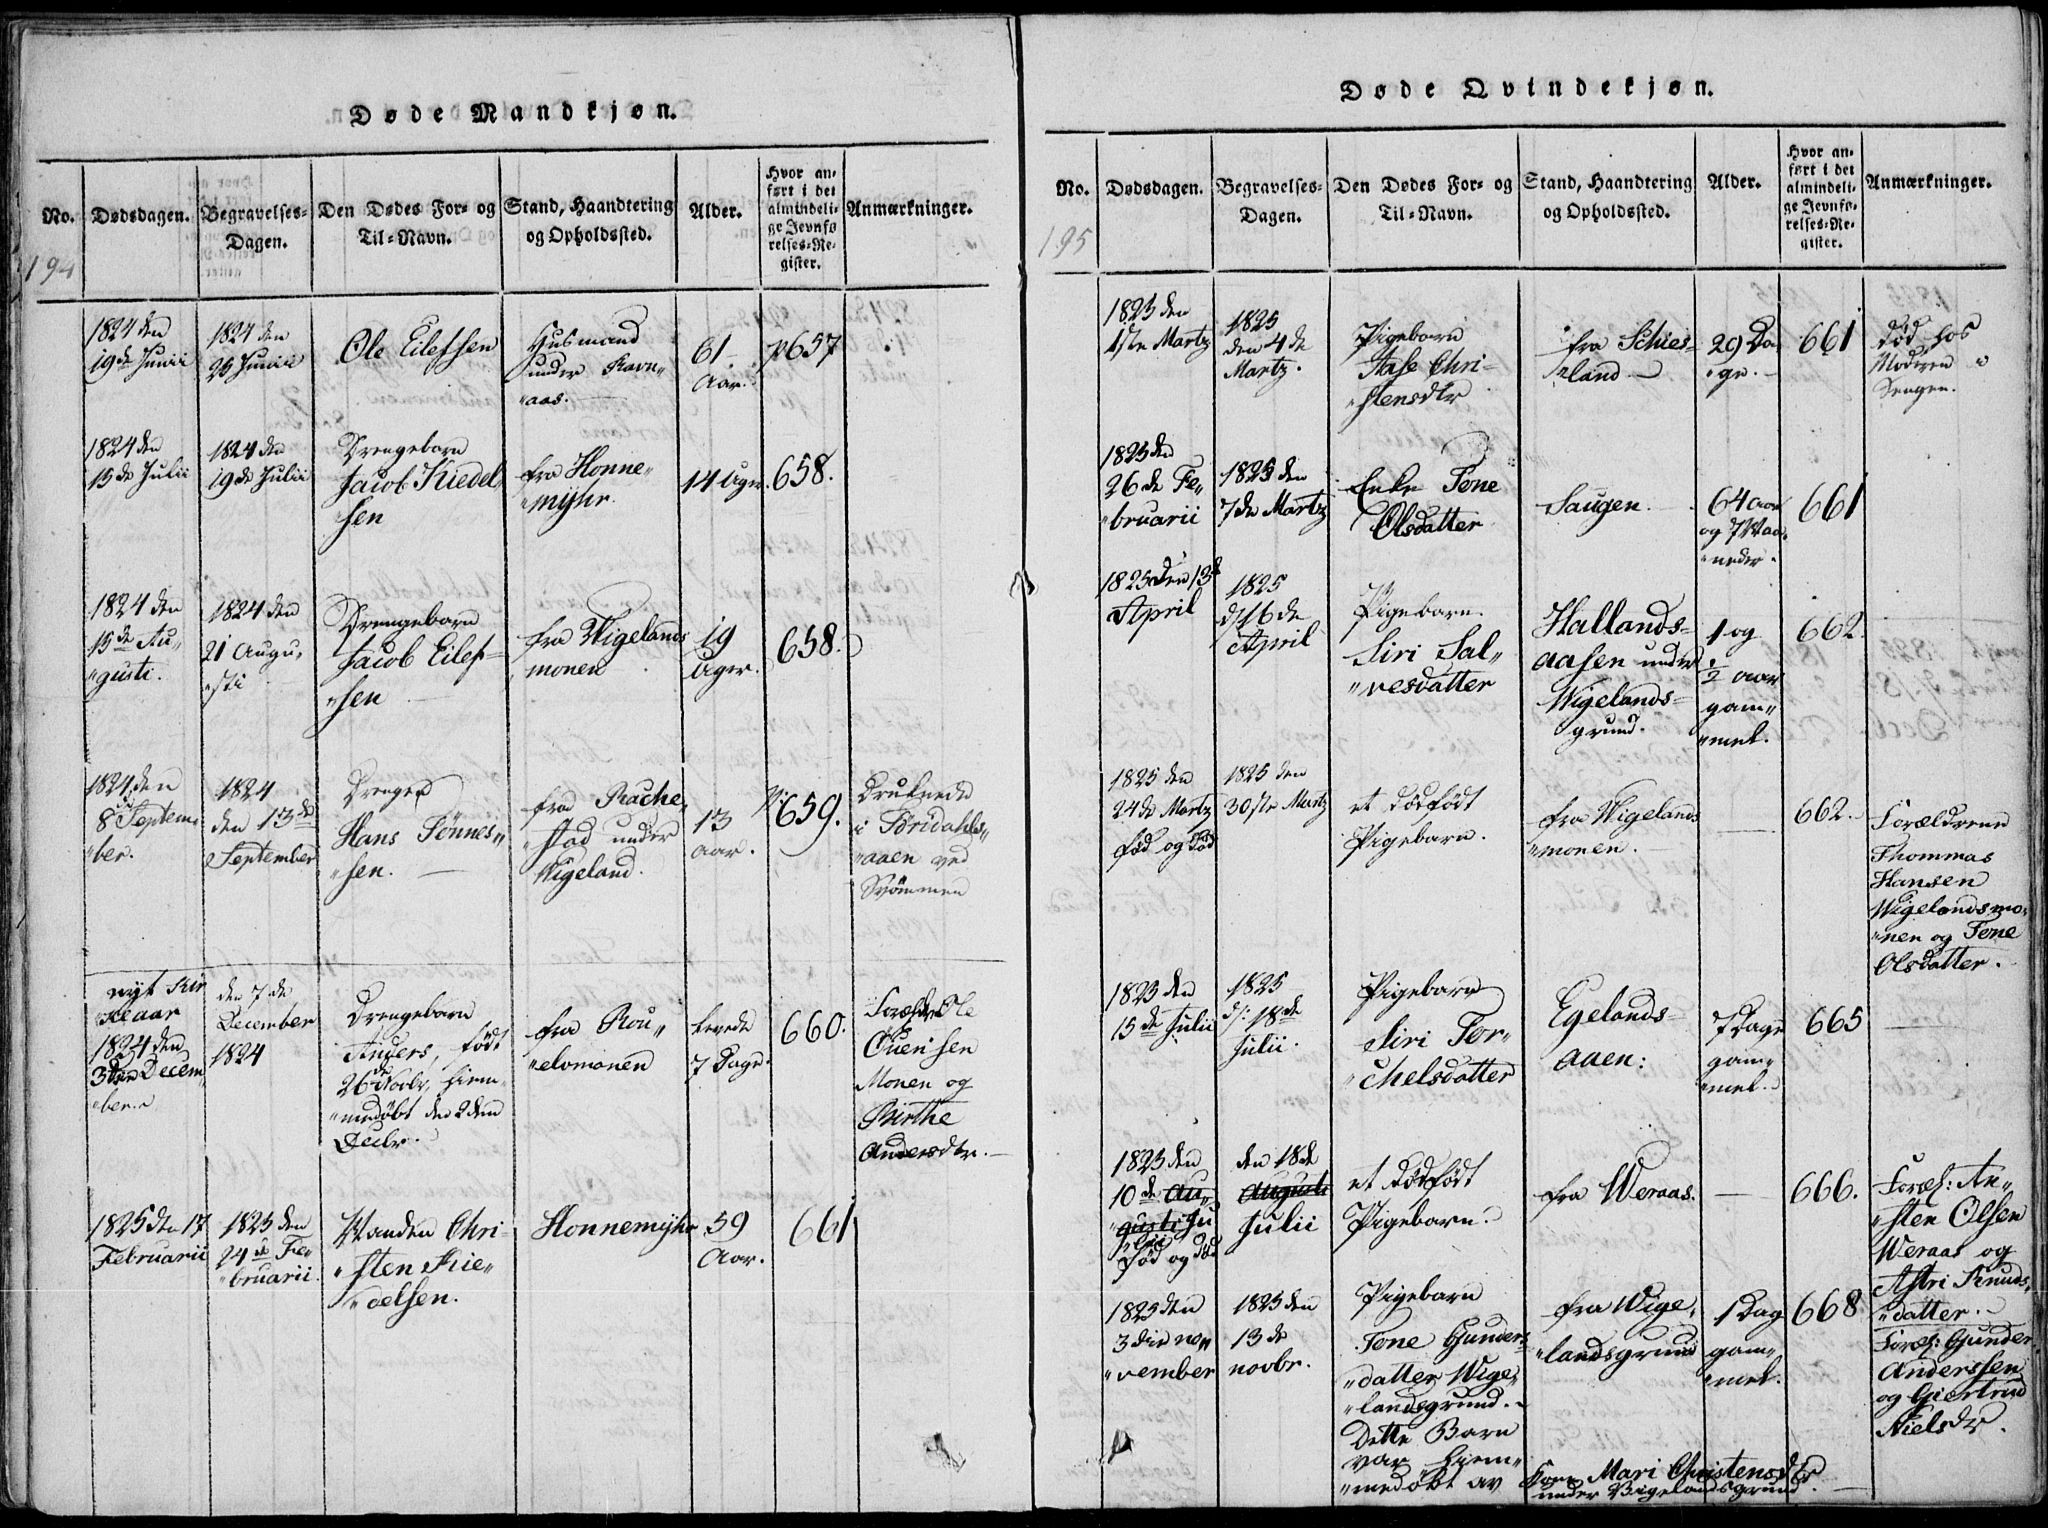 Døde Mandkjøn.
No.
Dødsdagen.
Begravelses-
Dagen.
Den Dødes For- og
Til-Navn.
Stand, Haandtering
og Opholdssted.
Alder.
Hvor an-
ført i det
almindeli-
ge Jevnfø
relses-Re-
gister.
Anmærkninger.
194
1824 den
19de Junii
1824 den
25 Junii
Ole Eilefsen
Husmand
under Ravn„
„aas.
61
Aar.
p657
1824 den
15de Julii
1824 den
19de Julii
Drengebarn
Jacob Kiedel„
„sen
fra Honne„
„myhr.
14 Uger.
658.
1824 den
15de Au„
„gusti.
1824 den
21 Augu„
„sti
Drengebarn
Jacob Eilef„
„sen
fra Wigelands
monen
19
Uger.
658.
1824 den
8de Septem
ber.
1824
den 13de
September
Drengen
Hans Tønnes„
„sen.
fra Rache„
„stad under
Wigeland.
13
aar.
659.
Druknede
i Torridahls„
„aaen ved
Svømmen
nyt Kir
ke aar
1824 den
3die Decem„
„ber.
den 7de
December
1824
Drengebarn
Anders, født
26de Novbr, hiem„
„medøbt den 2den
Decbr.
fra Rou„
„elvmonen
Levede
7 Dage.
660.
Forældre Ole
Ouensen
Monen og
Birthe
Andersdtr.
1825 den 17
Februarii
1825 den
24de Fe„
„bruarii.
Manden Chri„
„sten Kie„
„delsen.
Honnemyhr
59
Aar.
661
Døde Qvindekjøn.
No.
Dødsdagen.
Begravelses-
Dagen.
Den Dødes For- og
Til-Navn.
Stand, Haandtering
og Opholdssted.
Alder.
Hvor an-
ført i det
almindeli-
ge Jevnfø-
relses-Re-
gister.
Anmærkninger.
195
1825 den
1ste Martz
1825
den 4de
Martz.
Pigebarn
Aase Chri„
„stensdtr
fra Schies„
„land
29 Da„
„ge.
661
død hos
Moderen i
Sengen.
1825 den
26de Fe„
„bruarii
1825 den
7de Martz
Enke Tone
Olsdatter
Saugen.
64 aar
og 7 Maa„
„neder.
661
1825 den 13de
April
1825
d/16de
April
Pigebarn.
Siri Sal„
„vesdatter
Hallands-
aasen under
Wigelands-
grund.
1 og
½ aar
gam„
„mel.
662
1825 den
24de Martz
fød og død
1825 den
30ste Martz
et dødfødt
Pigebarn.
fra Wigelands
„monen.
662.
Forældrene
Thommas
Hansen
Wigelandsmo„
„nen og Tone
Olsdatter.
1825 den
15de Julii
1825
d: 18de
Julii.
Pigebarn
Siri Tor„
„chelsdatter
Egelands-
aaen:
7 Dage
gam„
„mel.
665
1825 den
10de Au„
gusti Ju
„lii
fød og død
den 18de
Augusti
Julii
et dødfødt
Pigebarn.
fra Weraas.
666.
Foræl: An„
„sten Olsen
Weraas og
Astri Knuds„
„datter.
1825 den
3die no„
„vember
1825 den
13de
novbr.
Pigebarn
Tone Gunders„
„datter Wige„
„landsgrund.
Dette Barn
var hiem„
„medøbt av Kone Mari Christensdtr
under Vigelandsgrund.
fra Wige„
„landsgrund
1 Dag
gam„
„mel.
668
Foræl: Gunder
Anderssen
og Giertrud
Nielsdr.